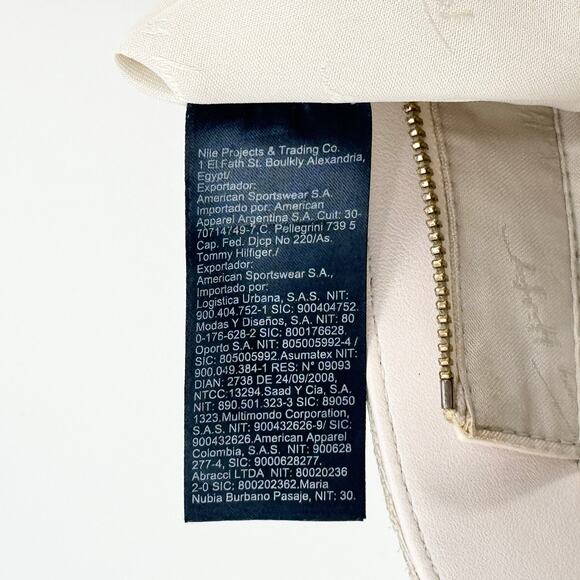 Nile Projects & Trading Co.
1 El Fath St. Boulkly Alexandria,
Egypt/
Exportador:
American Sportswear S.A.
Importado por: American
Apparel Argentina S.A. Cuit: 30-
70714749-7,C. Pellegrini 739 5
Cap. Fed. Djcp No 220/As.
Tommy Hilfiger./
Exportador:
American Sportswear S.A.,
Importado por:
Logistica Urbana, S.A.S. NIT:
900.404.752-1 SIC: 900404752.
Modas Y Diseños, S.A. NIT: 80
0-176-628-2 SIC: 800176628.
Oporto S.A. NIT: 805005992-4 /
SIC: 805005992.Asumatex NIT:
900.049.384-1 RES: N° 09093
DIAN: 2738 DE 24/09/2008,
NTCC:13294.Saad Y Cia, S.A.
NIT: 890.501.323-3 SIC: 89050
1323.Multimondo Corporation,
S.A.S. NIT: 900432626-9/ SIC:
900432626.American Apparel
Colombia, S.A.S. NIT: 900628
277-4, SIC: 9000628277.
Abracci LTDA NIT: 80020236
2-0 SIC: 800202362.Maria
Nubia Burbano Pasaje, NIT: 30.